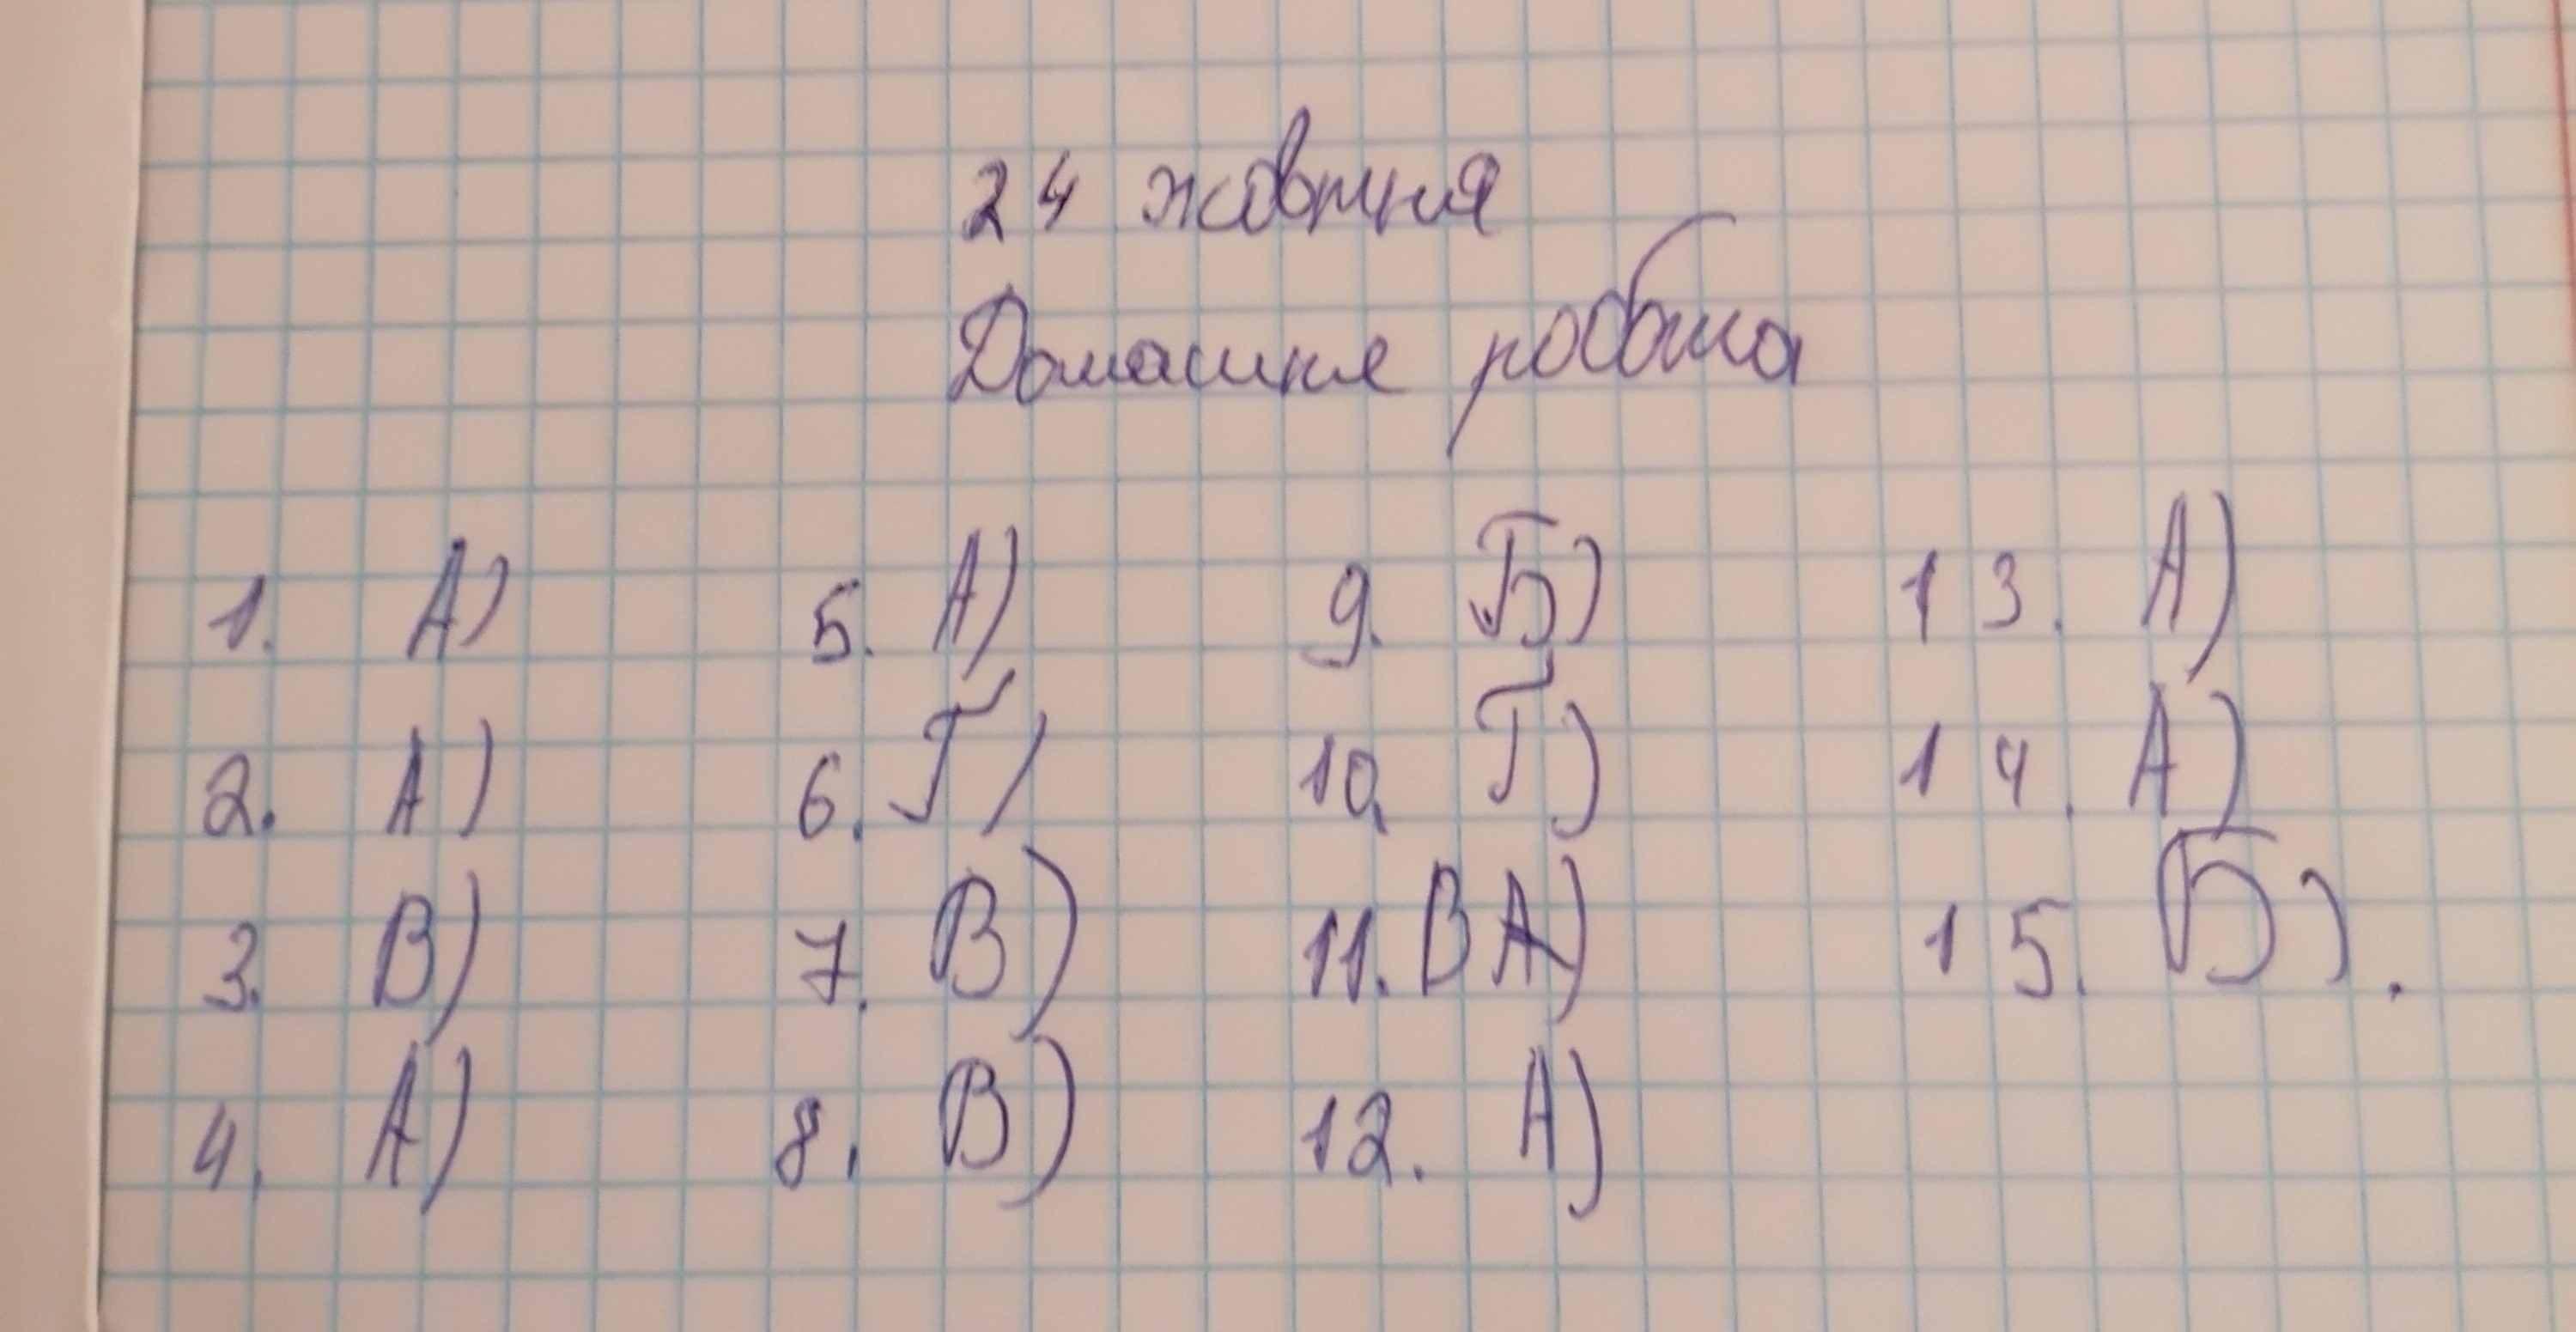 24 жовтня
Домашня робота
1. А) 5. А) 9. Б) 13. А)
2. А) 6. Г) 10. Г) 14. А)
3. В) 7. В) 11. В А) 15. Б).
4. А) 8. В) 12. А)